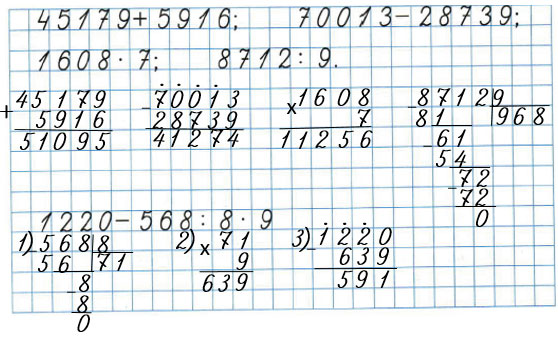 45179+5916; 70013-28739;
1608·7; 8712:9.
+ 45179 - 70013 x 1608 - 8712 9
5916 28739 7 81 968
51095 41274 11256 - 61
54
- 72
72
0
1220-568:8·9
1) - 568 8 2) x 71 3) - 1220
56 71 9 639
- 8 639 581
8
0